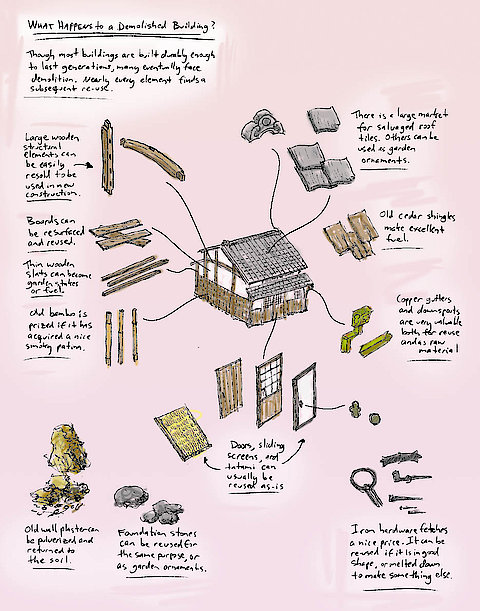 WHAT HAPPENS to a Demolished Building?
Though most buildings are built durably enough
to last generations, many eventually face
demolition. Nearly every element finds a
subsequent re-use.
There is a large market
for salvaged roof
tiles. Others can be
used as garden
ornaments.
Large wooden
structural
elements can
be easily
resold to be
used in new
construction.
Boards can
be resurfaced
and reused.
Old cedar shingles
make excellent
fuel.
Thin wooden
slats can become
garden stakes
or fuel.
Old bamboo is
prized if it has
acquired a nice
smoky patina.
Copper gutters
and downspouts
are very valuable
both for reuse
and as raw
material
Doors, sliding
screens, and
tatami can
usually be
reused as-is
Old wall plaster can
be pulverized and
returned to
the soil.
Foundation stones
can be reused for
the same purpose, or
as garden ornaments.
Iron hardware fetches
a nice price. It can be
reused if it is in good
shape, or melted down
to make something else.